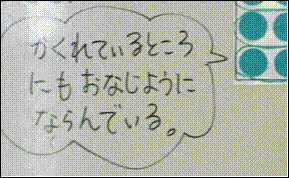 かくれているところ
にも おなじように
ならんでいる。